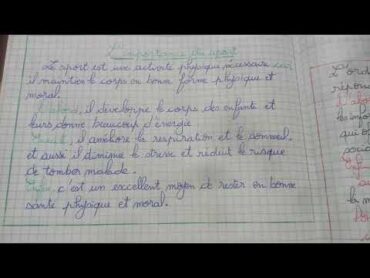 L'importance du sport
Le sport est une activité physique nécessaire car
il maintien le corps en bonne forme physique et
moral.
D'abord, il développe le corps des enfants et
leurs donne beaucoup d'énergie
Ensuite, il améliore la respiration et le sommeil.
et aussi il diminue le stress et réduit le risque
de tomber malade.
Enfin, c'est un excellent moyen de rester en bonne
santé physique et moral.
L'ord